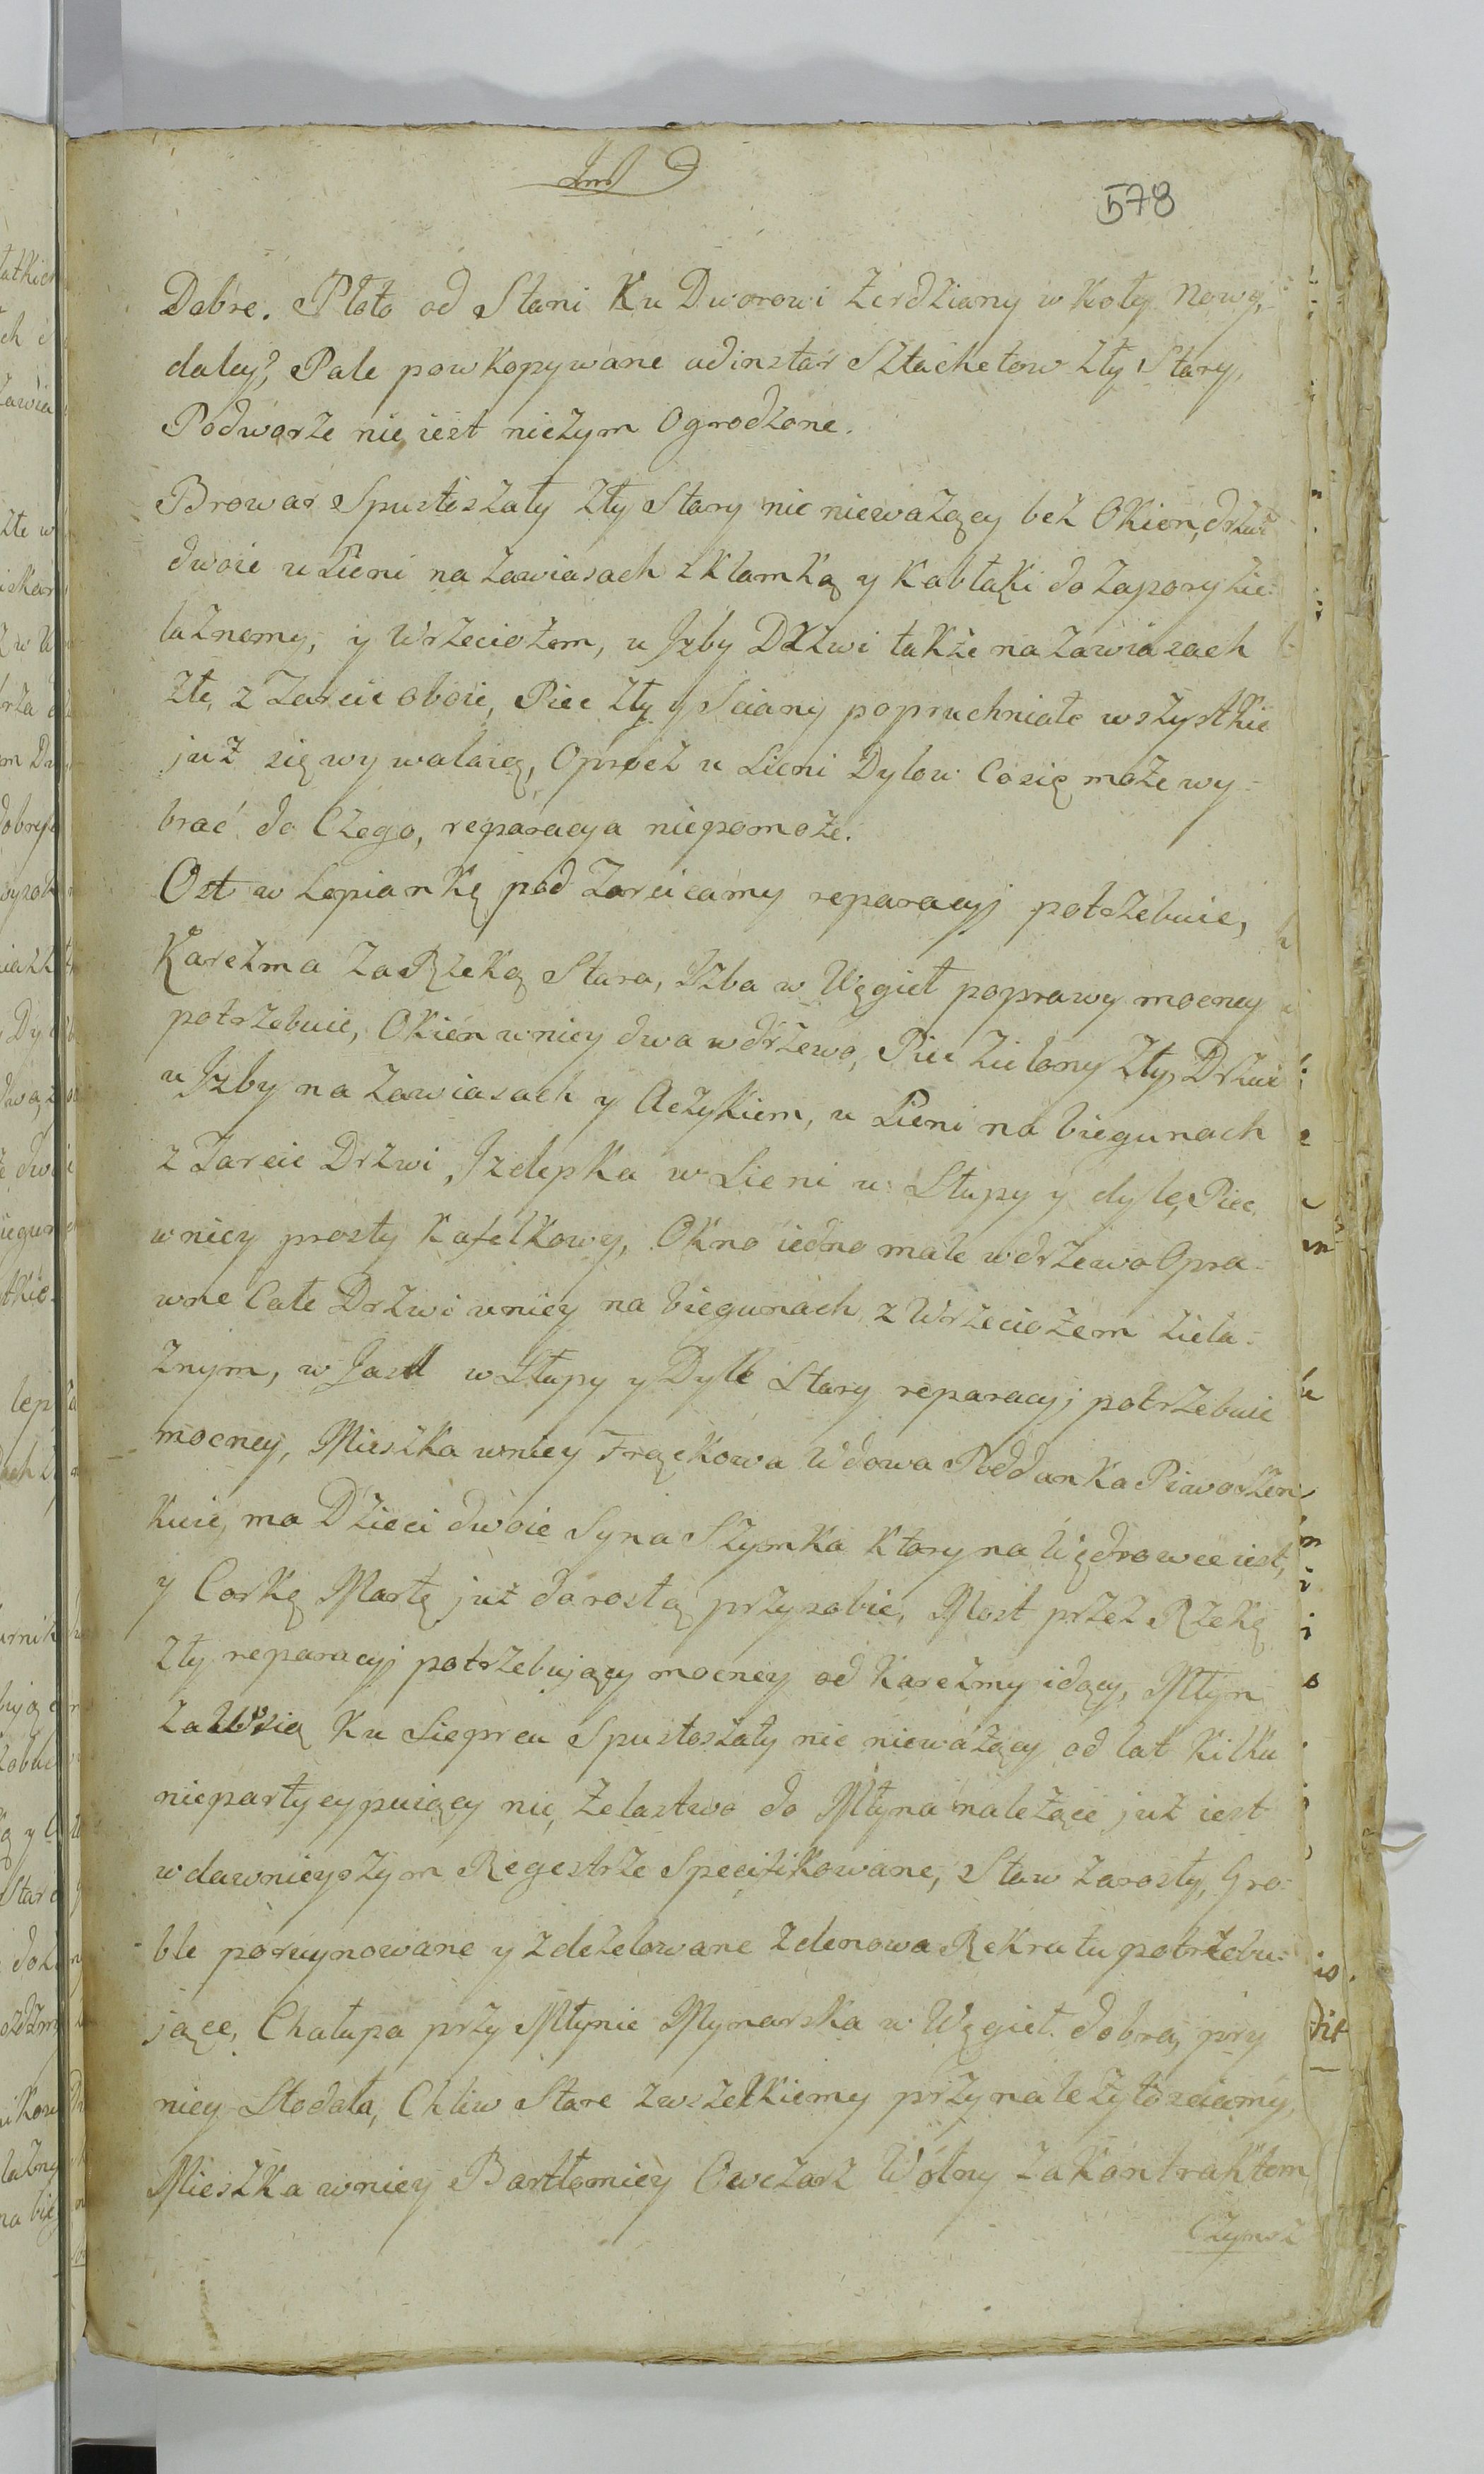 578
Dobre. Płoto od Stani Ku Dworowi Zerdziany w Koły nowy,
daley, Pale powkopywane adinstar Sztachetow zły Stary,
Podworze nie iest niczym Ogrodzone.
Browar Spustoszały zły Stary nic nieważący bez Okien, drzwi
dwoie u Sieni na zawiasach z Klamką y Kabłąki do Zapory żie-
laznemy, y Wrzeciożem, u Jzby Drzwi także na zawiasach
złe, z Tarcic oboie, Piec zły y Sciany popruchniałe wszystkie
już się wywalaią, Oprocz u Sieni Dylow Co się może wy-
brać do Czego, reparacya niepomoże.
Ost w Lepiankę pod Tarcicamy reparacyj potrzebuie,
Karczma za Rzeką Stara, Izba w Węgieł poprawy mocney
potrzebuie, Okien wniey dwa w drzewo, Piec Zielony Zły, Drzwi
u Jzby na zawiasach y Aczykiem, u Sieni na biegunach
z Tarcic Drzwi, Jzdepka w Sieni w Słupy y dyle, Piec
wniey prosty Kafelkowy, Okno iedno małe w drzewo Opra-
wne Całe Drzwi wniey na biegunach z Wrzeciożem żiela-
znym, w Słupy y Dyle Stary reparacyj potrzebuie
mocney, Mieszka wniey Frąckowa Wdowa Poddanka
ma Dzieci dwoie Syna Szymka Ktory na Wędrowce iest,
y Corkę Martę już dorosłą przy sobie, Most przez Rzekę
zły reparacyj potrzebujący mocney od Karczmy idący, Młyn
za Wsią Ku Sieprcu Spustoszały nic nieważący od lat Kilku
niepartycypuiący nic, Zelastwo do Młyna należące już iest
w dawnieyszym Regestrze Specifikowane, Staw zarosły, Gro-
ble porujnowane y zdezelowane zdenowa Rekrutu potrzebu-
jące, Chałupa przy Młynie Mynarska w Węgieł dobra, przy
niey Stodoła, Chliw Stare zwszelkiemy przynależytosciamy,
Mieszka wniey Bartłomiey Owczarz Wolny za Kontraktem
Czynsz